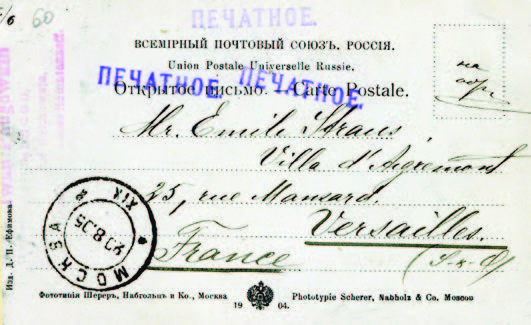 60
ПЕЧАТНОЕ.
ВСЕМІРНЫЙ ПОЧТОВЫЙ СОЮЗЪ. РОССІЯ.
Union Postale Universelle Russie.
ПЕЧАТНОЕ. ПЕЧАТНОЕ.
Открытое письмо. — Carte Postale.
на
обр.
Mr. Emile Straus
Villa d'Aigremont
25, rue Mansard.
Versailles.
France
(S.-&-O)
МОСКВА
20.8.05
XIX
Изд. Д. П. Ефимова
Фототипія Шереръ, Набгольцъ и Ко., Москва
1904.
Phototypie Scherer, Nabholz & Co. Moscou